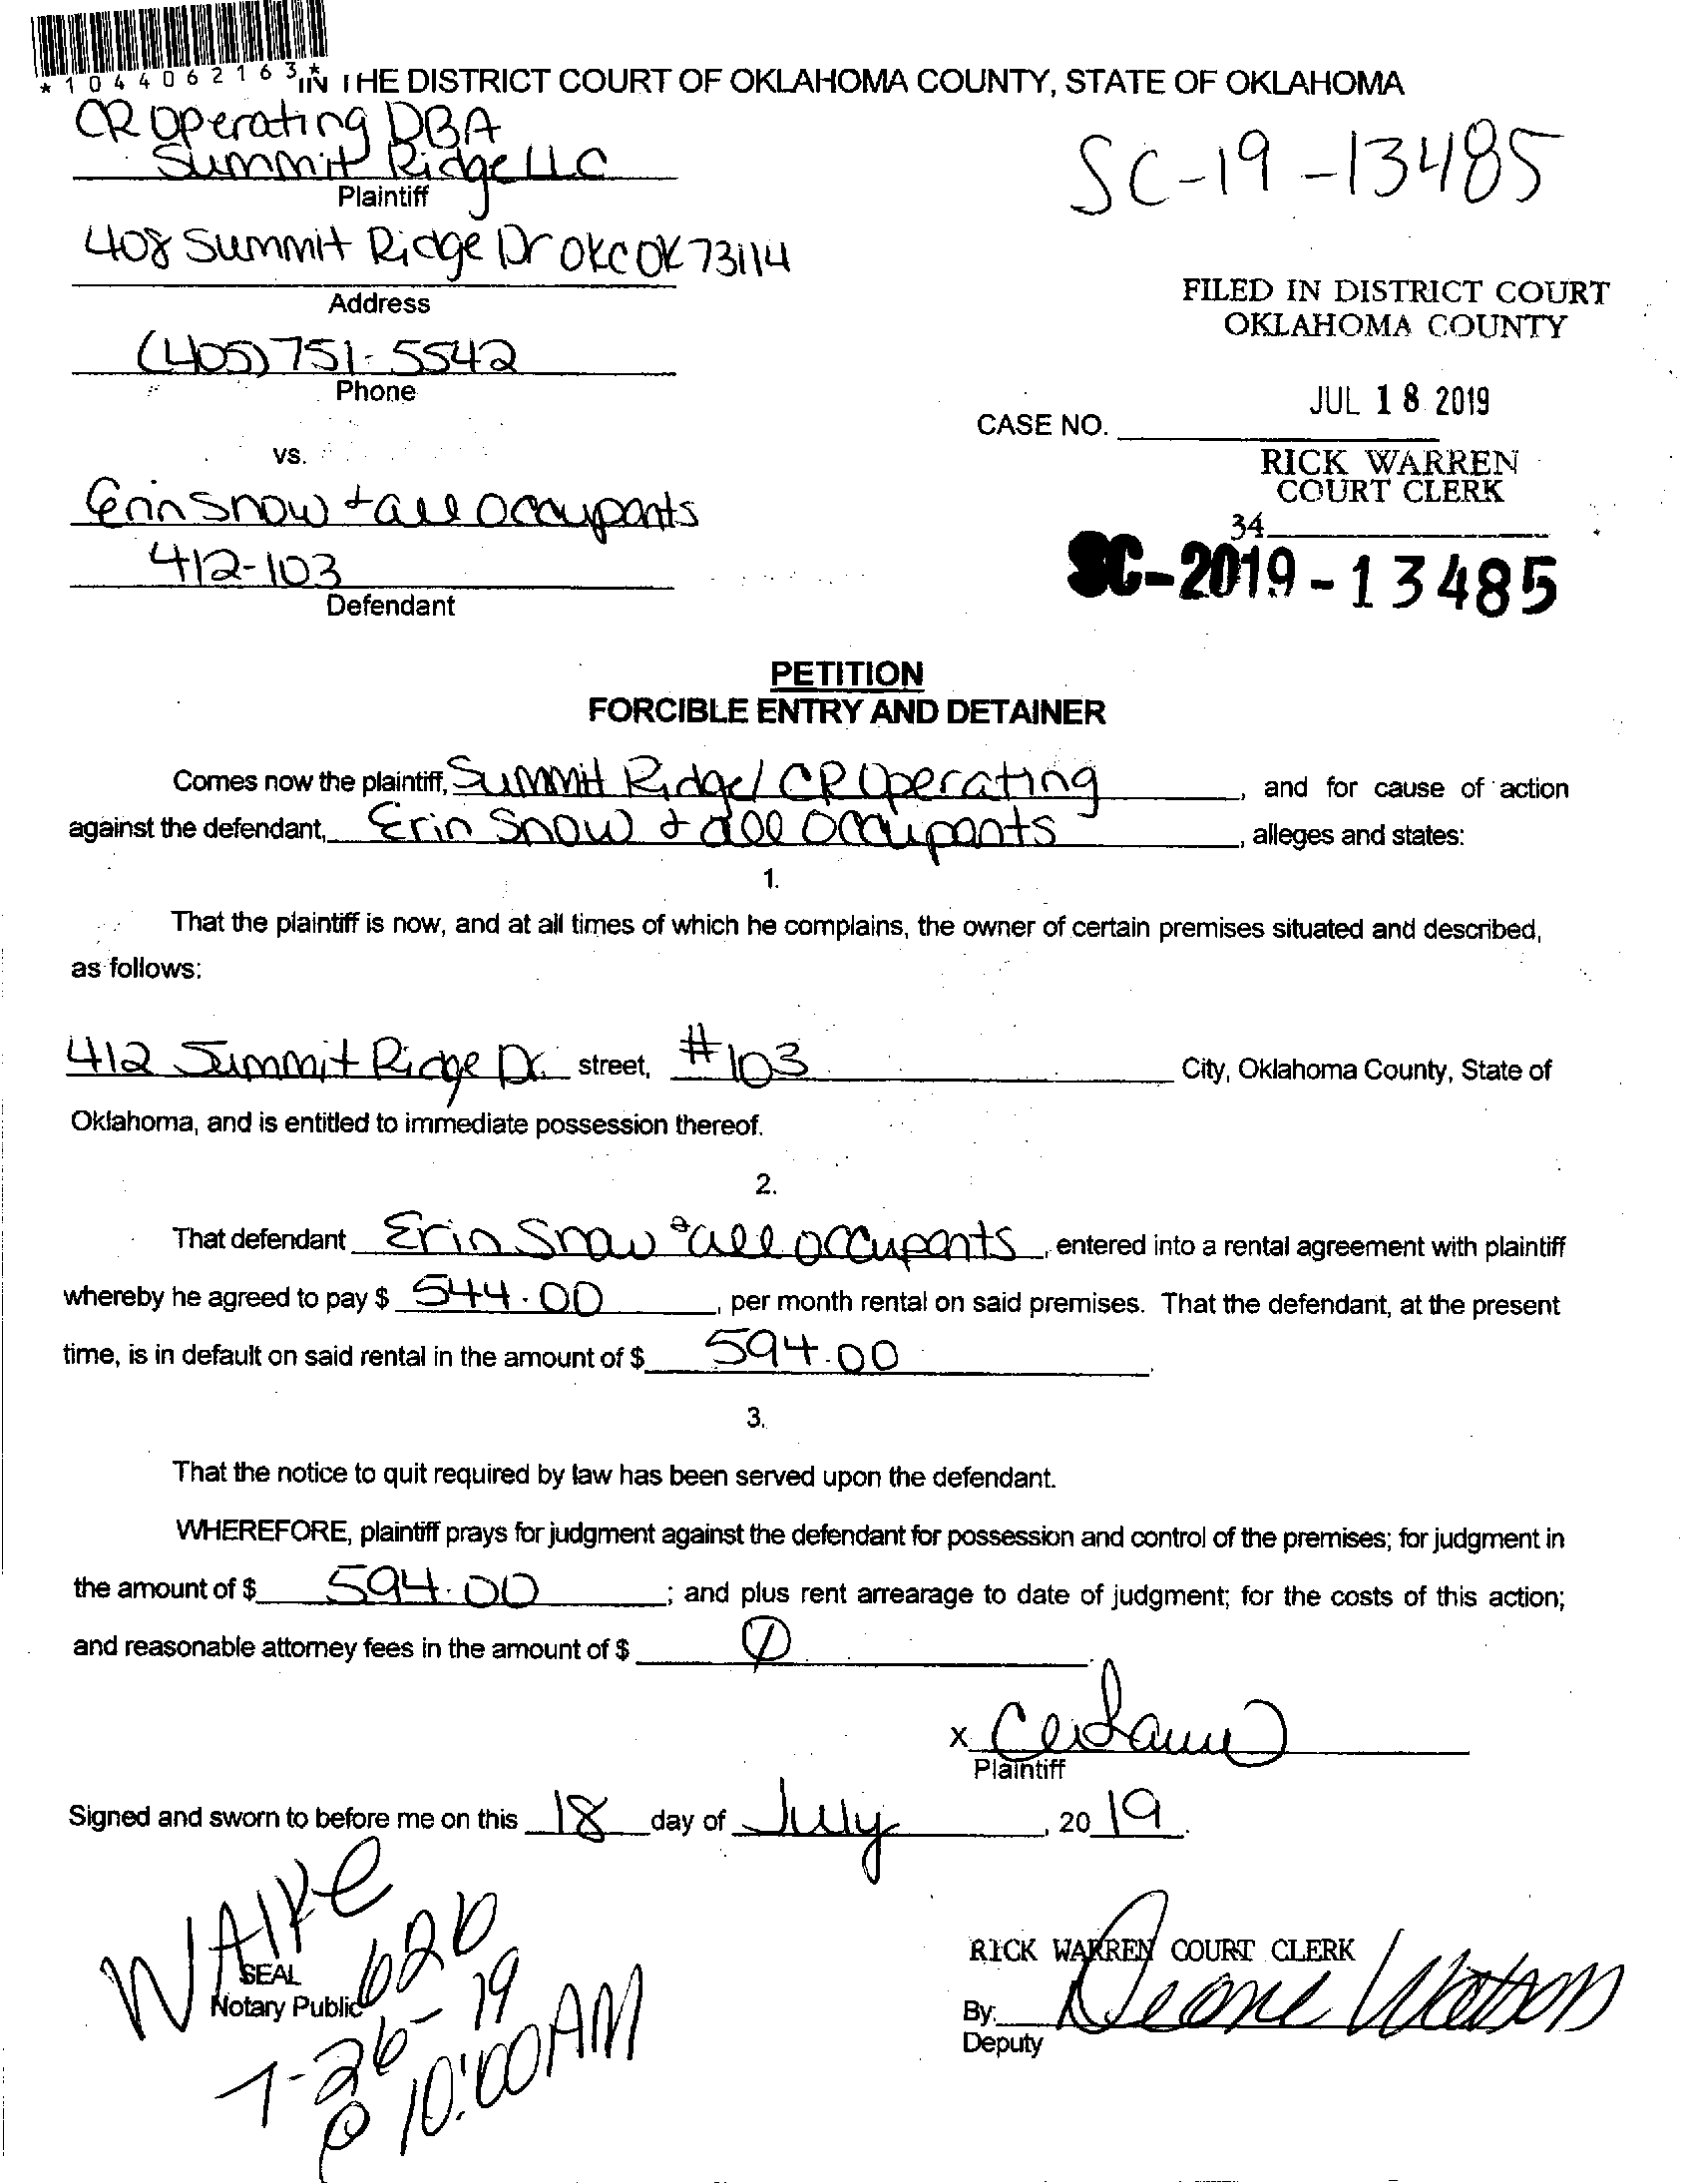 *1044062163*
IN THE DISTRICT COURT OF OKLAHOMA COUNTY, STATE OF OKLAHOMA
CR Operating DBA
Summit Ridge LLC
Plaintiff
SC-19-13485
408 Summit Ridge Dr OKC OK 73114
Address
FILED IN DISTRICT COURT
OKLAHOMA COUNTY
(405) 751-5542
Phone
JUL 18 2019
CASE NO.
vs.
RICK WARREN
COURT CLERK
Erin Snow + all occupants
34
412-103
SC-2019-13485
Defendant
PETITION
FORCIBLE ENTRY AND DETAINER
Comes now the plaintiff, Summit Ridge/ CR Operating, and for cause of action
against the defendant, Erin Snow & all occupants, alleges and states:
1.
That the plaintiff is now, and at all times of which he complains, the owner of certain premises situated and described,
as follows:
412 Summit Ridge Dr. street, #103 City, Oklahoma County, State of
Oklahoma, and is entitled to immediate possession thereof.
2.
That defendant Erin Snow & all occupants, entered into a rental agreement with plaintiff
whereby he agreed to pay $ 544.00, per month rental on said premises. That the defendant, at the present
time, is in default on said rental in the amount of $ 594.00.
3.
That the notice to quit required by law has been served upon the defendant.
WHEREFORE, plaintiff prays for judgment against the defendant for possession and control of the premises; for judgment in
the amount of $ 594.00; and plus rent arrearage to date of judgment; for the costs of this action;
and reasonable attorney fees in the amount of $ 0.
x
Plaintiff
Signed and sworn to before me on this 18 day of July, 20 19.
SEAL
Notary Public
626
7-26-19
@ 10:00 AM
RICK WARREN COURT CLERK
By: Deone Watson
Deputy